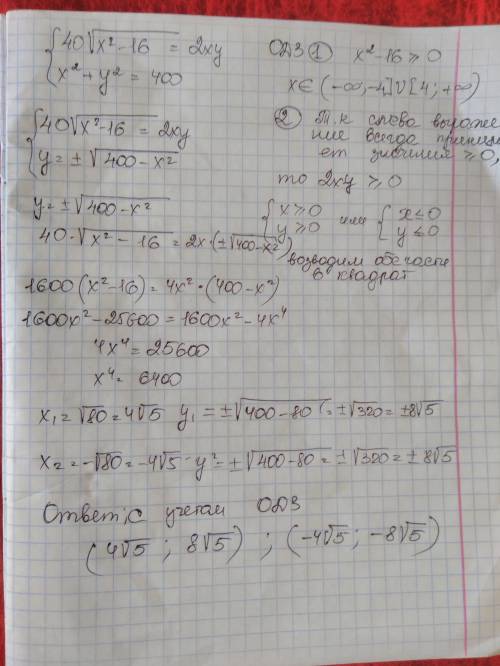 {40√(x²-16) = 2xy
{x² + y² = 400
ОДЗ ① x²-16 ≥ 0
x ∈ (-∞;-4]∪[4;+∞)
{40√(x²-16) = 2xy
{y = ±√(400-x²)
② Т.к слева выраже
ние всегда принима
ет значения ≥ 0,
то 2xy ≥ 0
{x ≥ 0
{y ≥ 0
или
{x ≤ 0
{y ≤ 0
y = ±√(400-x²)
40·√(x²-16) = 2x·(±√(400-x²))
возводим обе части
в квадрат
1600(x²-16) = 4x²·(400-x²)
1600x²-25600 = 1600x²-4x⁴
4x⁴ = 25600
x⁴ = 6400
x₁ = √80 = 4√5 y₁ = ±√(400-80) = ±√320 = ±8√5
x₂ = -√80 = -4√5 - y² = ±√(400-80) = ±√320 = ±8√5
Ответ: с учетом ОДЗ
(4√5 ; 8√5) ; (-4√5 ; -8√5)